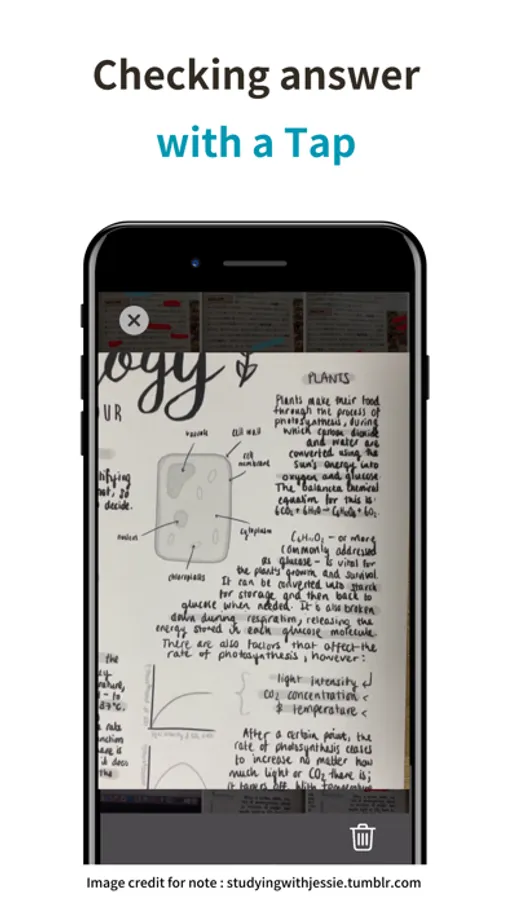 Checking answer
with a Tap
ogy
OUR
PLANTS
Plants make their food
through the process of
photosynthesis, during
which carbon dioxide
and water are
converted using the
sun's energy into
oxygen and glucose.
The balanced chemical
equation for this is:
6CO₂ + 6H₂O → C₆H₁₂O₆ + 6O₂.
vacuole
cell wall
cell
membrane
cytoplasm
nucleus
chloroplasts
not, so
decide.
C₆H₁₂O₆ - or more
commonly addressed
as glucose - is vital for
the plants growth and survival.
It can be converted into starch
for storage and then back to
glucose when needed. It is also broken
down during respiration, releasing the
energy stored in each glucose molecule.
There are also factors that affect the
rate of photosynthesis, however:
the
- to
37°C.
light intensity
CO₂ concentration <
& temperature <
rate
is
it does
the
After a certain point, the
rate of photosynthesis ceases
to increase no matter how
much light or CO₂ there is;
it tapers off. With temperature
Image credit for note : studyingwithjessie.tumblr.com